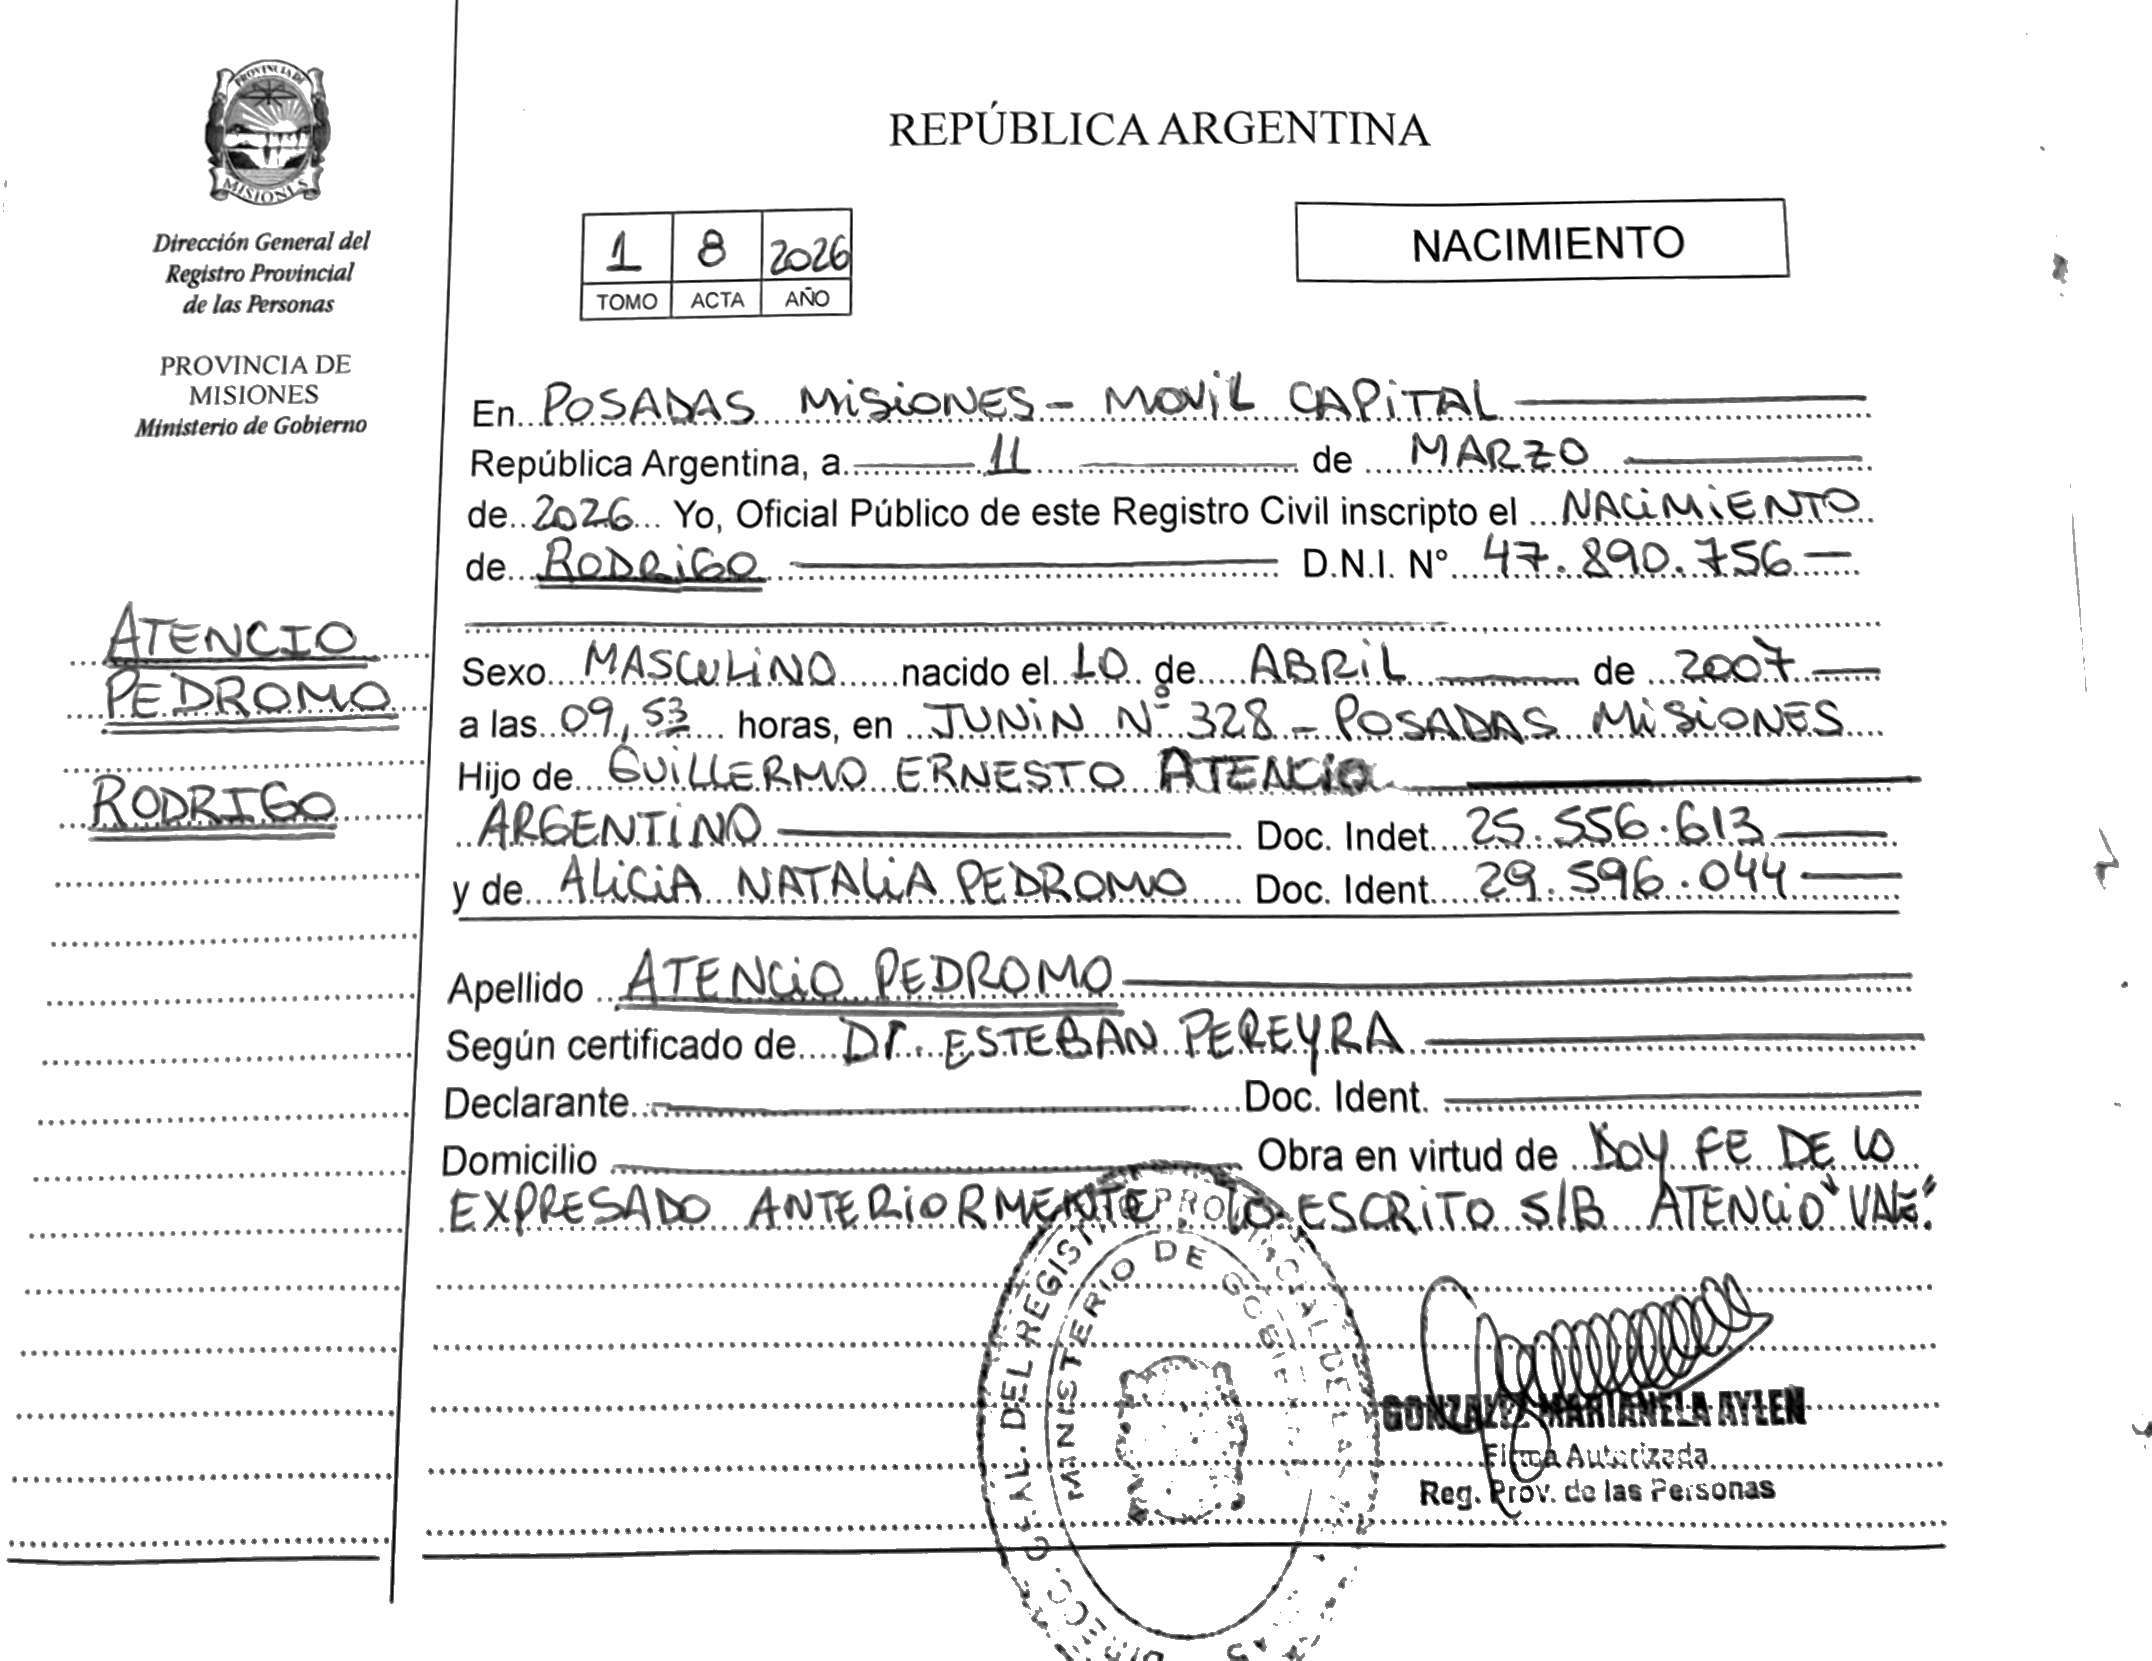 PROVINCIA DE
MISIONES
Dirección General del
Registro Provincial
de las Personas
PROVINCIA DE
MISIONES
Ministerio de Gobierno
ATENCIO
PEDROMO
RODRIGO
REPÚBLICA ARGENTINA
1 8 2026
TOMO ACTA AÑO
NACIMIENTO
En POSADAS MISIONES - MOVIL CAPITAL
República Argentina, a 11 de MARZO
de 2026 Yo, Oficial Público de este Registro Civil inscripto el NACIMIENTO
de RODRIGO D.N.I. N° 47.890.756
Sexo MASCULINO nacido el 10 de ABRIL de 2007
a las 09,53 horas, en JUNIN N° 328 - POSADAS MISIONES
Hijo de GUILLERMO ERNESTO ATENCIO
ARGENTINO Doc. Indet. 25.556.613
y de ALICIA NATALIA PEDROMO Doc. Ident. 29.596.044
Apellido ATENCIO PEDROMO
Según certificado de Dr. ESTEBAN PEREYRA
Declarante Doc. Ident.
Domicilio Obra en virtud de DOY FE DE LO
EXPRESADO ANTERIORMENTE LO ESCRITO S/B ATENCIO "VALE"
MINISTERIO DE
DEL REGISTRO
GONZALEZ MARIANELA AYLEN
Firma Autorizada
Reg. Prov. de las Personas